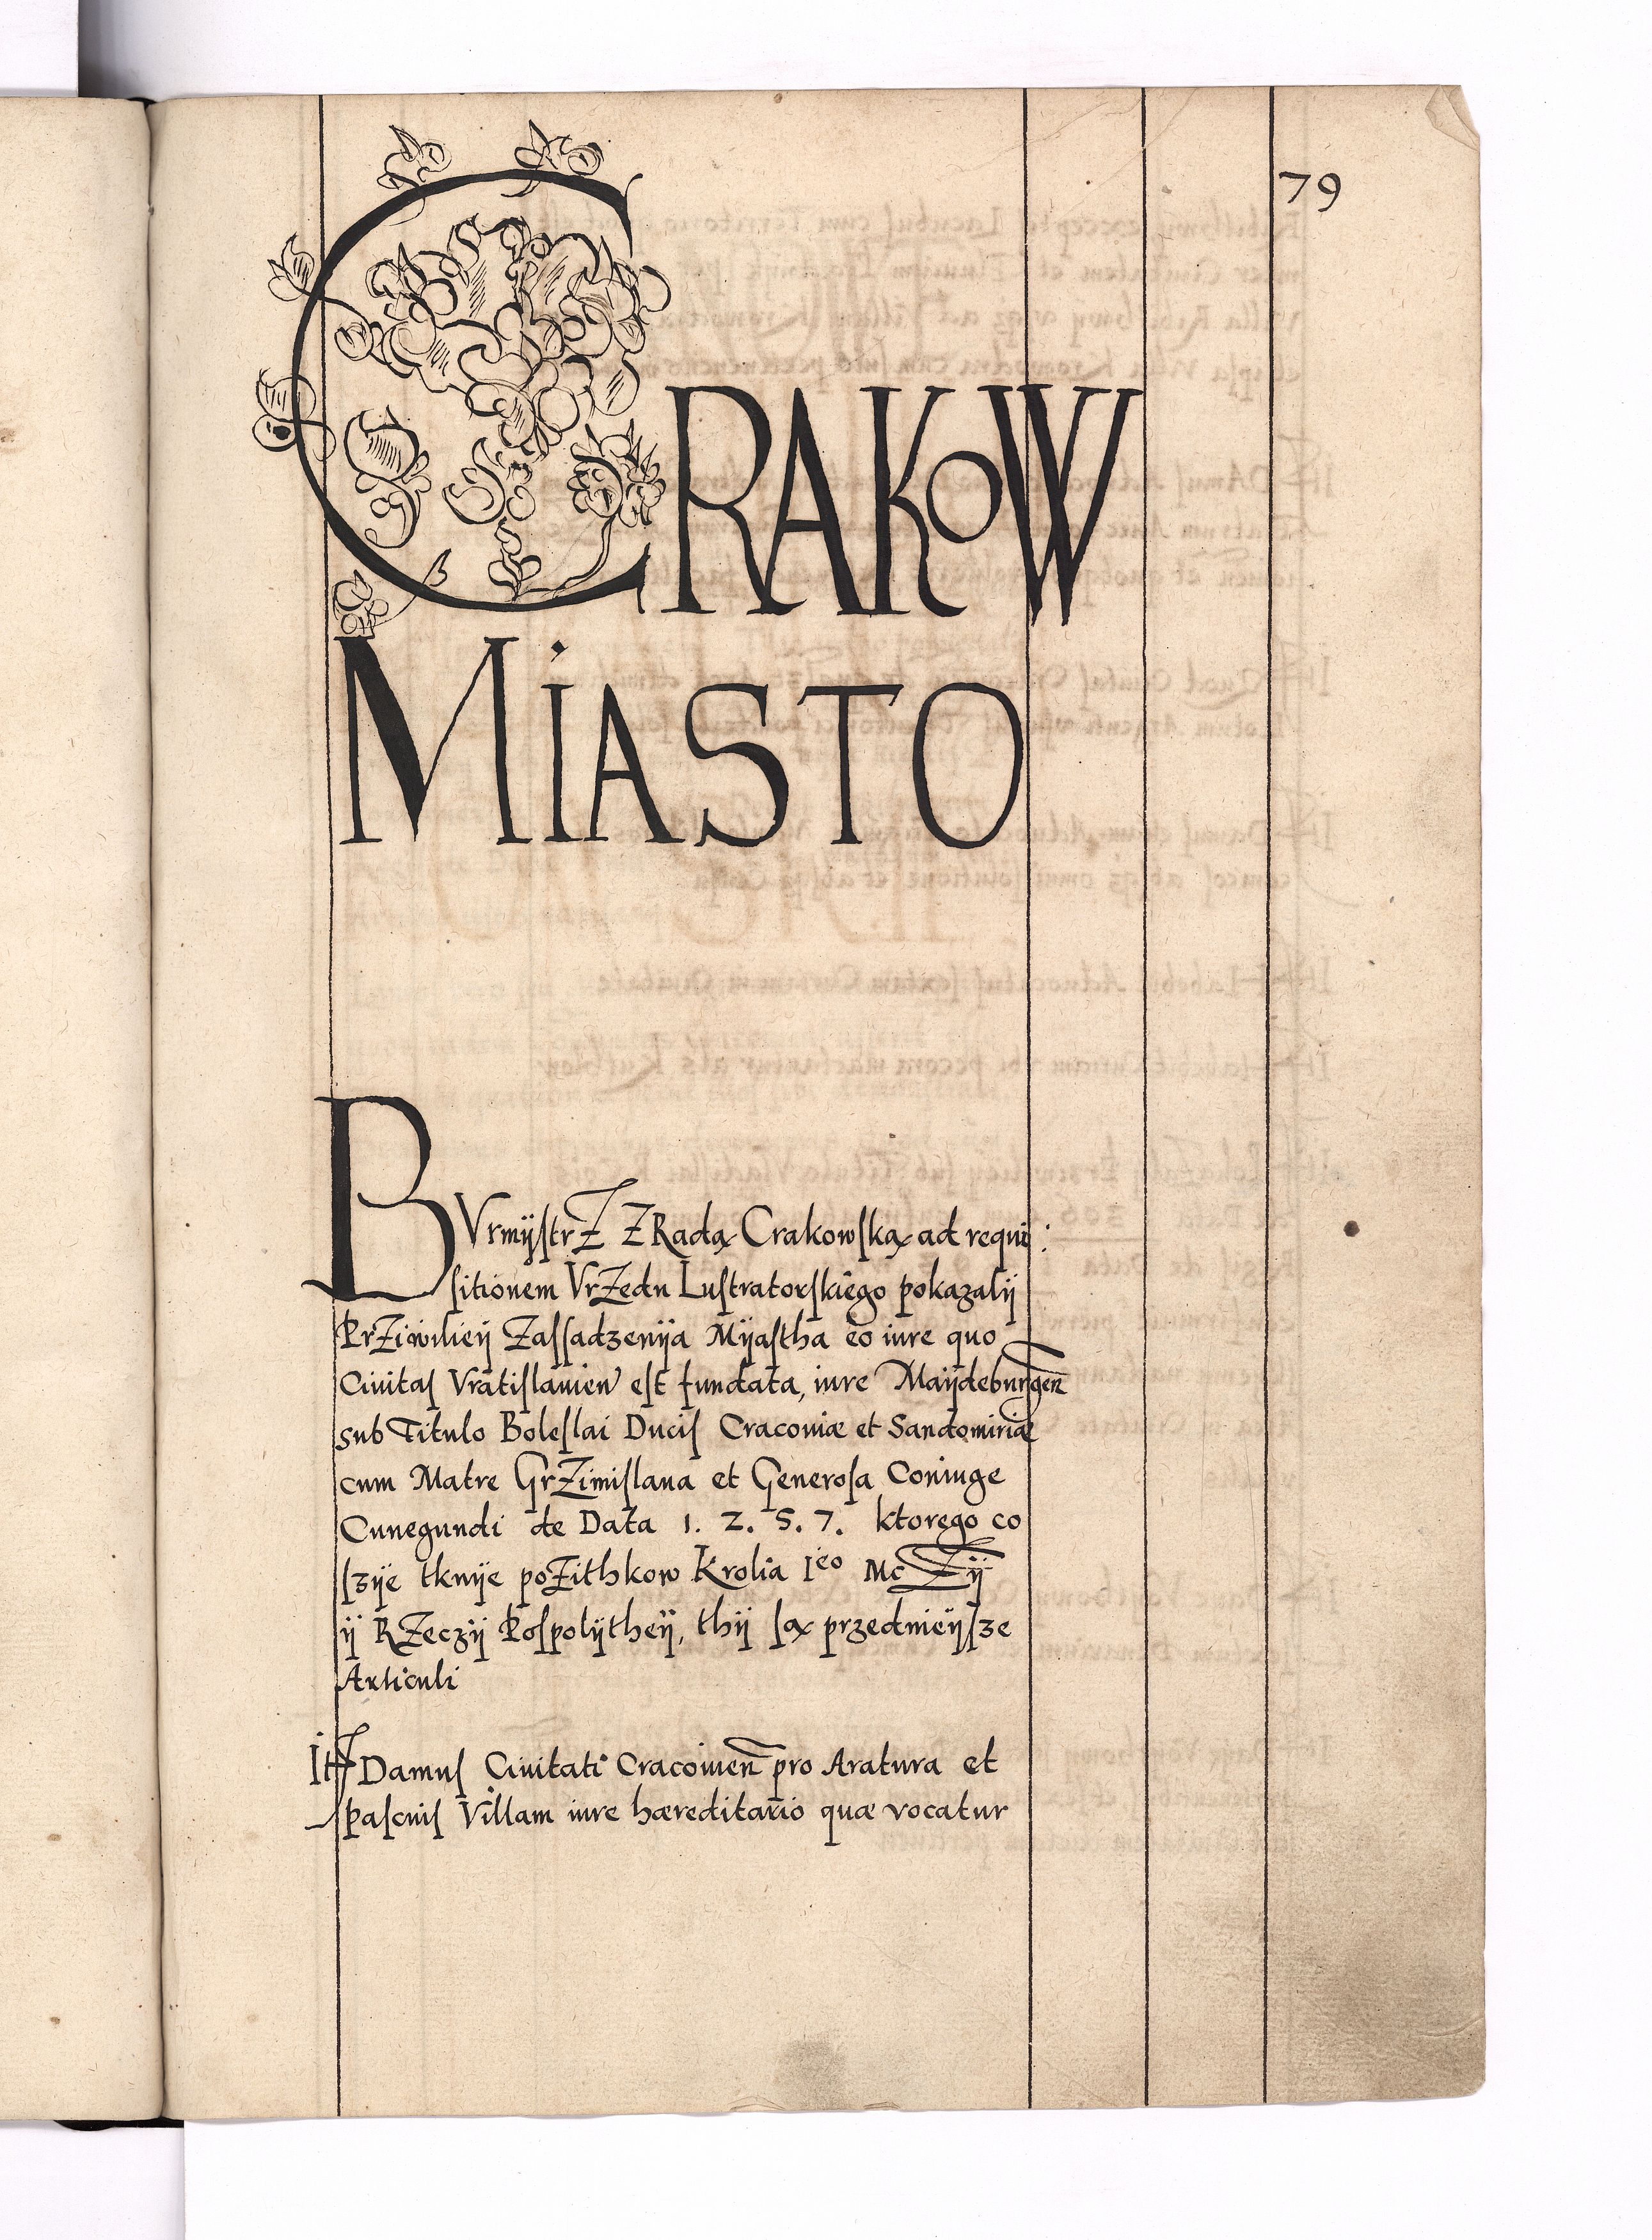 79
CRAKoW
MiASTO
BVrmÿſtrZ Z Radą Crakowſką ad requi:
ſitionem VrZedu Luſtratorſkiego pokazalÿ
PrZiwiliey Zaſſadzenÿa Mÿaſtha eo iure quo
Ciuitaſ Vratiſlauien̄ eſt fundata, iure Maÿdeburgen̄
sub Titulo Boleſlai Duciſ Cracouiæ et Sandomiriæ
cum Matre GrZimiſlaua et Generoſa Coniuge
Cunegundi de Data 1. 2. 5. 7. ktorego co
ſzÿe tknÿe poZithkow Krolia Ieo McZÿ
ÿ RZeczÿ Poſpolÿtheÿ, thÿ ſą przednieÿſze
Articuli
It̄ Damuſ Ciuitati Cracouien̄ pro Aratura et
paſcuiſ Villam iure hæreditario quæ vocatur